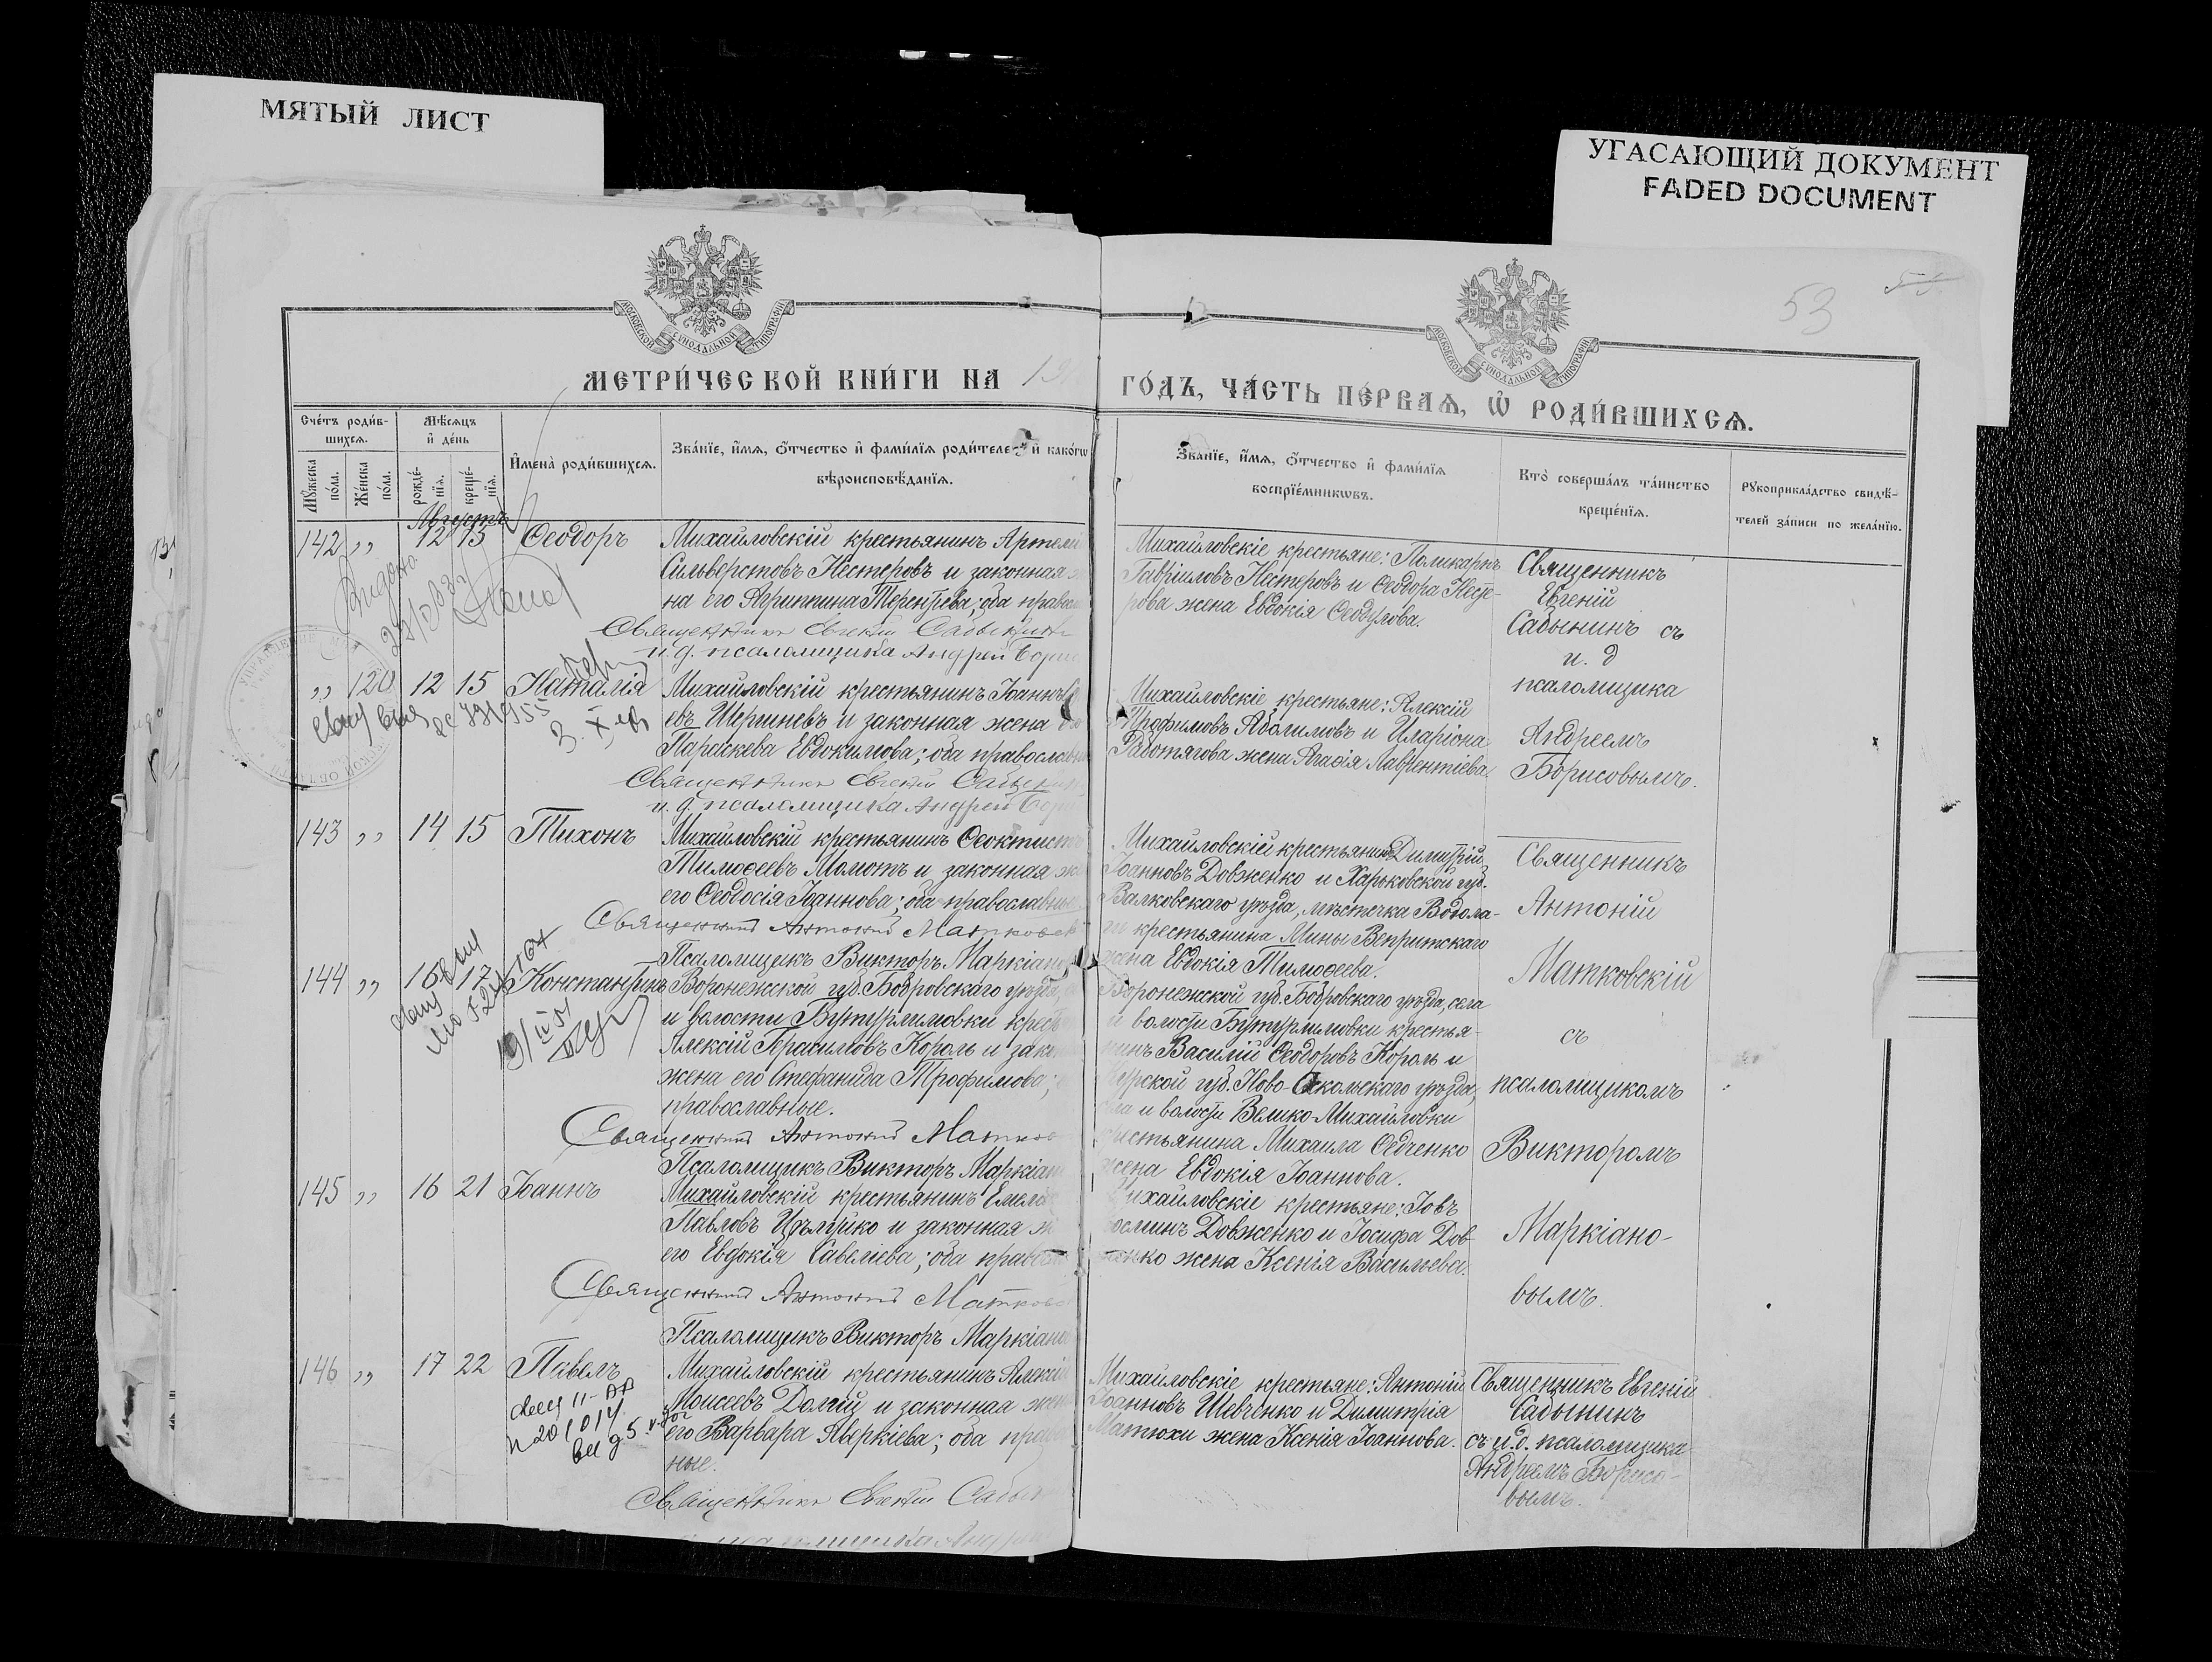 МЯТЫЙ ЛИСТ
УГАСАЮЩИЙ ДОКУМЕНТ
FADED DOCUMENT
53
МОСКОВСКОЙ СѴНОДАЛЬНОЙ ТИПОГРАФІИ
МОСКОВСКОЙ СѴНОДАЛЬНОЙ ТИПОГРАФІИ
МЕТРИ́ЧЕСКОЙ КНИ́ГИ НА 19
ГО́ДЪ, ЧА́СТЬ ПЕ́РВАѦ, Ѡ РОДИ́ВШИХСѦ.
Сче́тъ роди́в-
шихсѧ.
Мꙋ́жеска по́ла.
Же́нска по́ла.
Мѣ́сѧцъ
и де́нь
рожде́-
нїѧ.
креще́-
нїѧ.
Имена̀ роди́вшихсѧ.
Зва́нїе, и́мѧ, ѻ҆́тчество и фами́лїѧ роди́телей и како́гѡ
вѣроисповѣ́данїѧ.
Зва́нїе, и́мѧ, ѻ҆́тчество и фами́лїѧ
воспрїе́мникѡвъ.
Кто̀ соверша́лъ та́инство
креще́нїѧ.
Рꙋкоприкла́дство свидѣ́-
телей за́писи по жела́нїю.
Августъ
142 „ 12 15 Ѳеодоръ
Михайловскій крестьянинъ Артемі
Сильверстовъ Нестеровъ и законная
на его Агриппина Терентьева; оба правосл
Священникъ Евгеній Садынинъ
и. д. псаломщика Андрей Борис
Михайловскіе крестьяне: Поликарпъ
Гавріиловъ Нестеровъ и Ѳеодора Несте-
рова жена Евдокія Ѳеодулова.
Священникъ
Евгеній
Садынинъ съ
и. д
псаломщика
Андреемъ
Борисовымъ.
„ 120 12 15 Наталія
Михайловскій крестьянинъ Іоаннъ
евъ Шершневъ и законная жена его
Параскева Евдокимова; оба православн
Священникъ Евгеній Садынин
и. д. псаломщика Андрей Борис
Михайловскіе крестьяне: Алексій
Трофимовъ Аболимовъ и Иларіона
Работягова жена Агаѳія Лаврентіева.
143 „ 14 15 Тихонъ
Михайловскій крестьянинъ Ѳеоктистъ
Тимоѳеевъ Молотъ и законная ж
его Ѳеодосія Іоаннова; оба православные
Священникъ Антоній Матковскі
Псаломщикъ Викторъ Маркіано
Михайловскій крестьянинъ Димитрій
Іоанновъ Довженко и Харьковской губ.
Валковскаго уѣзда, мѣстечка Водола-
ги крестьянина Мины Вепритскаго
жена Евдокія Тимоѳеева.
Священникъ
Антоній
Матковскій
съ
псаломщикомъ
Викторомъ
Маркіано-
вымъ.
144 „ 16 17 Константинъ
Воронежской губ. Бобровскаго уѣзда,
и волости Бутурлиновки крест
Алексій Герасимовъ Король и зако
жена его Стефанида Трофимова;
православные.
Священникъ Антоній Матков
Псаломщикъ Викторъ Маркіан
Воронежской губ. Бобровскаго уѣзда, села
и волости Бутурлиновки крестья-
нинъ Василій Ѳеодоровъ Король и
Курской губ. Ново-Оскольскаго уѣзда,
села и волости Велико-Михайловки
крестьянина Михаила Ѳедченко
жена Евдокія Іоаннова.
145 „ 16 21 Іоаннъ
Михайловскій крестьянинъ Емил
Павловъ Цѣлуйко и законная ж
его Евдокія Савеліева; оба правос
Священникъ Антоній Матковс
Псаломщикъ Викторъ Маркіано
Михайловскіе крестьяне: Іовъ
Довженко и Іосифа Дов-
женко жена Ксенія Васильева.
146 „ 17 22 Павелъ
Михайловскій крестьянинъ Алексій
Моисеевъ Долгій и законная жен
его Варвара Аверкіева; оба прав
ные.
Священникъ Евгеній Садын
псаломщика Андрей
Михайловскіе крестьяне: Антоній
Іоанновъ Шевченко и Димитрія
Матюхи жена Ксенія Іоаннова.
Священникъ Евгеній
Садынинъ
съ и.д. псаломщика
Андреемъ Борисо-
вымъ.